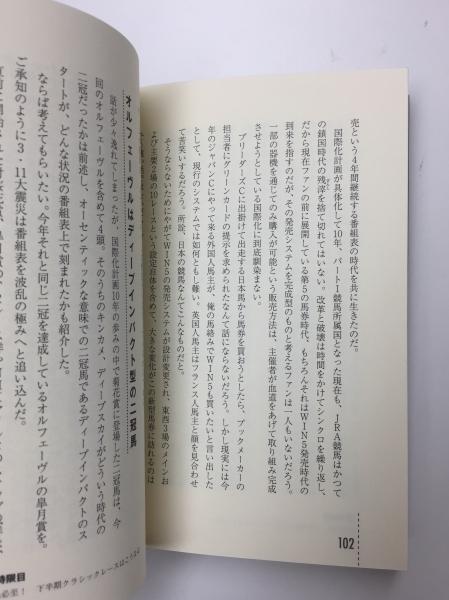 売という4年間継続する番組表の時代を共に生きたのだ。
国際化計画が具体化して10年、パートⅠ競馬所属国となった現在も、JRA競馬はかつて
の鎖国時代の残滓を捨て切れてはいない。改革と破壊は時間をかけてシンクロを繰り返し、
だから現在ファンの前に展開している第5の馬券時代、もちろんそれはWIN5発売時代の
到来を指すのだが、その発売システムを完成型のものと考えるファンは一人もいないだろう。
一部の器機を通じてのみ購入が可能という販売方法は、主催者が血道をあげて取り組み完成
させようとしている国際化に到底馴染まない。
ブリーダーズCに出掛けて出走する日本馬から馬券を買おうとしたら、ブックメーカーの
担当者にグリーンカードの提示を求められたなんて話にならないだろう。しかし現実には今
年のジャパンCにやって来る外国人馬主が、俺の馬絡みでWIN5も買いたいと言い出した
として、現行のシステムでは如何ともし難い。英国人馬主はフランス人馬主と顔を見合わせ
て苦笑いするだろう。所詮、日本の競馬なんてこんなものだと。
そうならないためにやがてWIN5の発売システムが設計変更され、東西3場のメインお
よび主要2場の10レースという設定自体を含めて、大きな変化がこの新型馬券に訪れるのは
オルフェーヴルはディープインパクト型の二冠馬
話が少々逸れてしまったが、国際化計画10年の歩みの中で菊花賞に登場した二冠馬は、今
回のオルフェーヴルを含めて4頭。そのうちのキンカメ、ディープスカイがどういう時代の
二冠だったかは前述し、オーセンティックな意味での二冠馬であるディープインパクトのス
タートが、どんな状況の番組表上で刻まれたかも紹介した。
ならば考えてもらいたい。今年それと同じ二冠を達成しているオルフェーヴルの皐月賞を。
ご承知のように3・11大震災は番組表を波乱の極みへと追い込んだ。
102
時限目
必至！ 下半期クラシックレースはこうなる